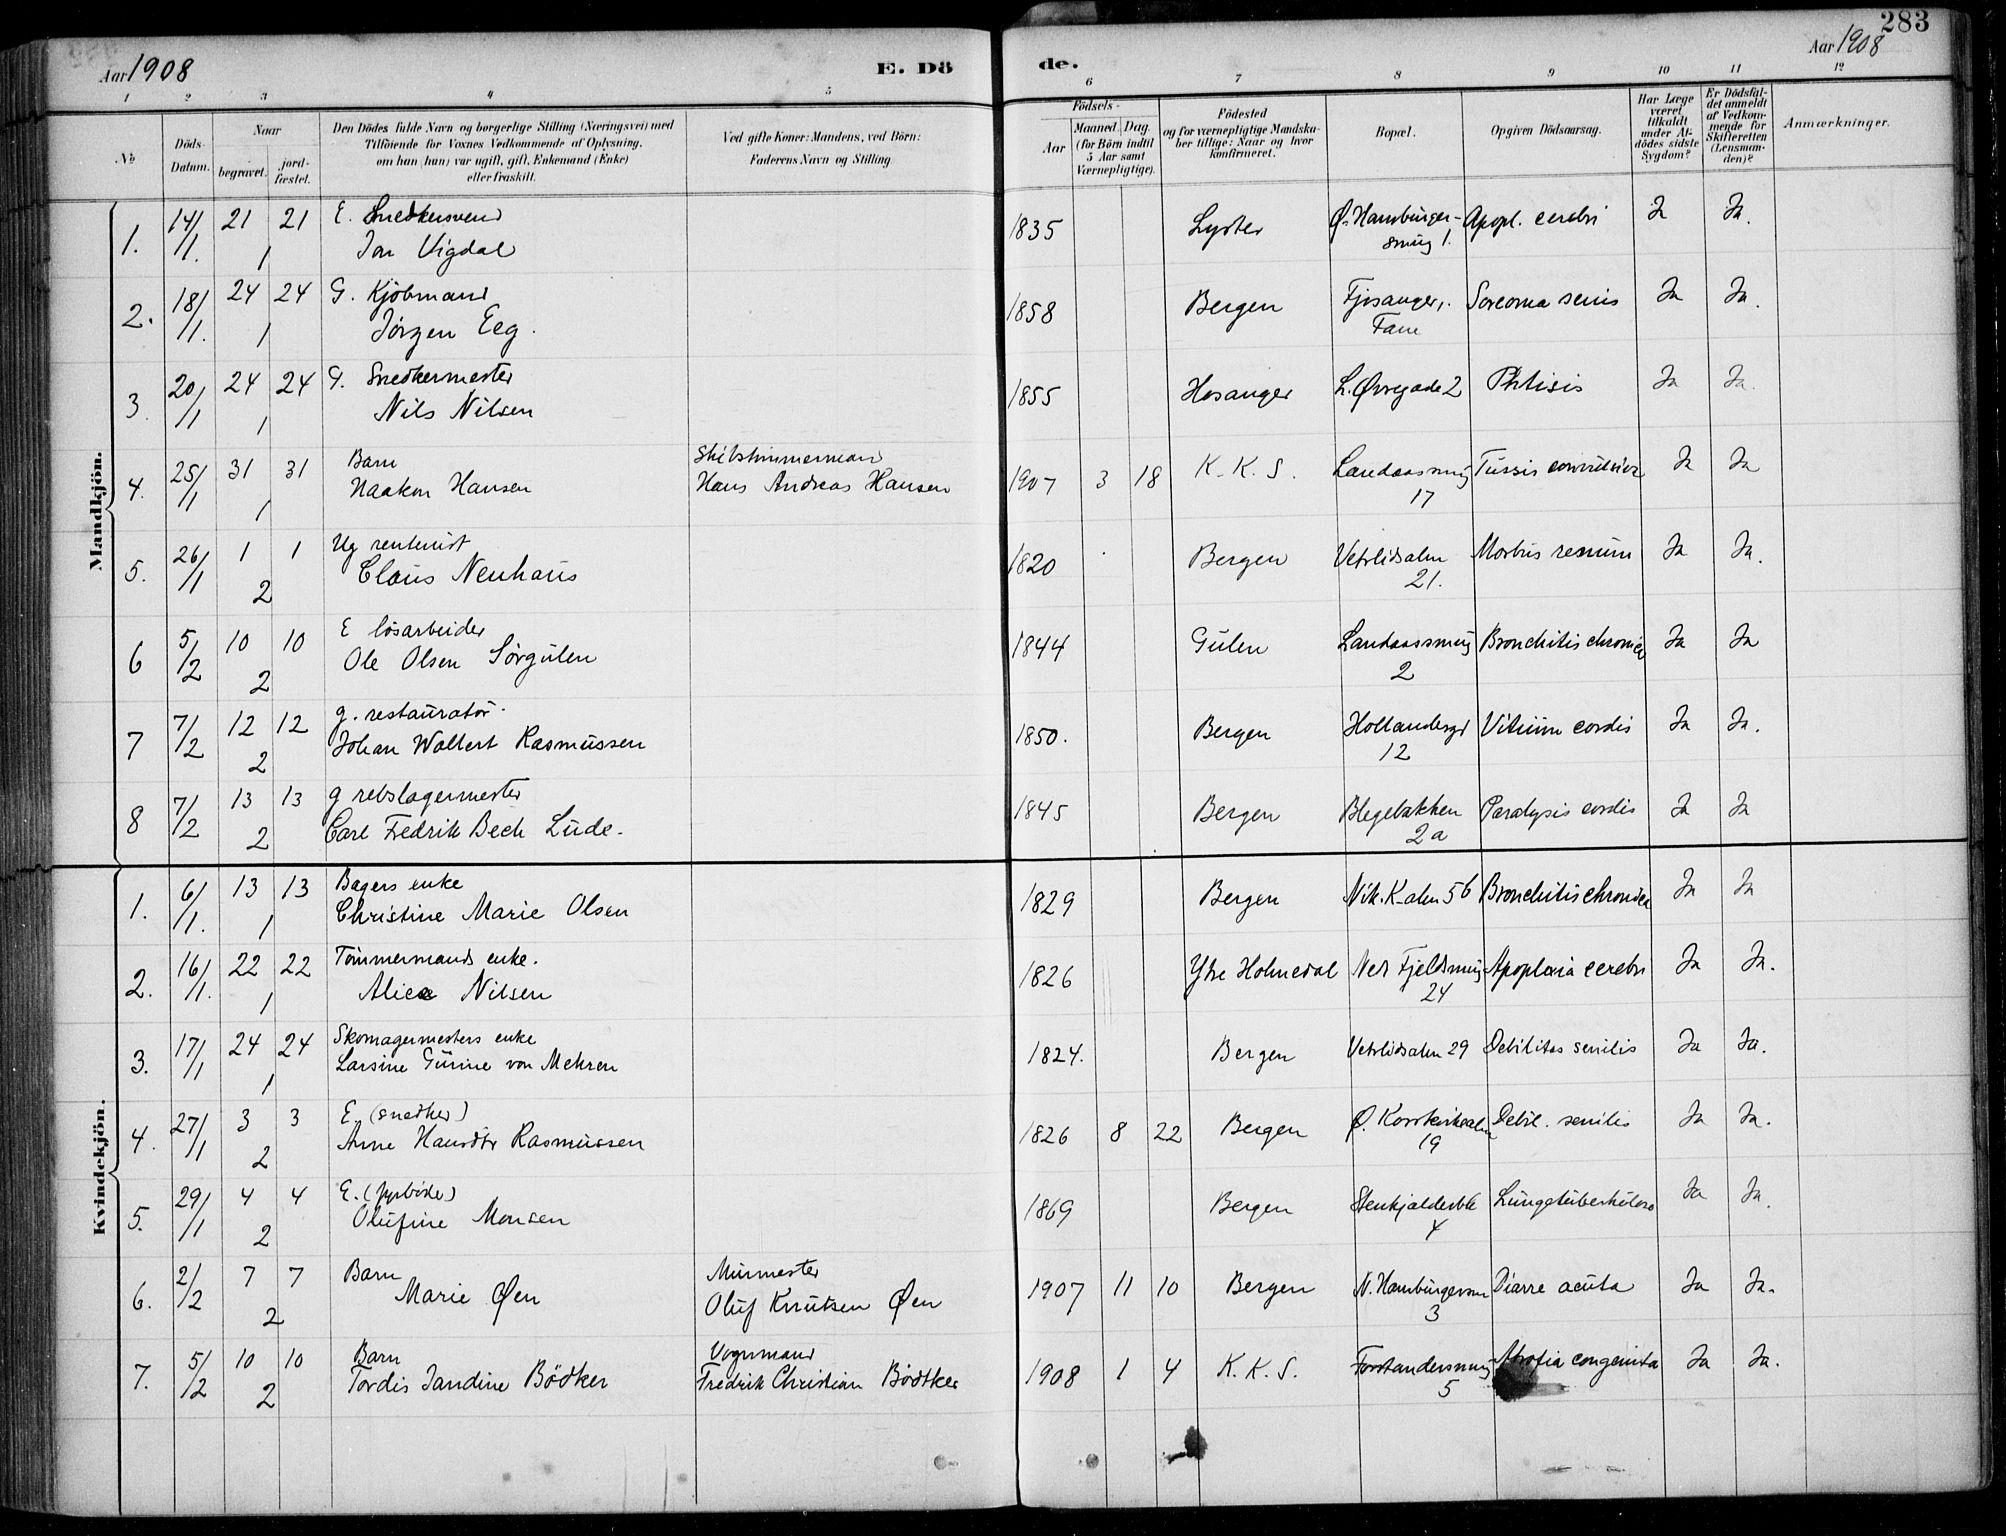 283
Aar 1908
E. Dö
de.
Aar 1908
1 2 3 4 5 6 7 8 9 10 11 12
№
Döds-
Datum.
Naar
begravet.
jord-
fæstet.
Den Dödes fulde Navn og borgerlige Stilling (Næringsvei) med
Tilföiende for Voxnes Vedkommende af Oplysning,
om han (hun) var ugift, gift, Enkemand (Enke)
eller fraskilt.
Ved gifte Koner: Mandens, ved Börn:
Faderens Navn og Stilling
Födsels-
Aar
Maaned. Dag.
(for Börn indtil
5 Aar samt
Værnepligtige).
Födested
og for værnepligtige Mandska-
ber tillige: Naar og hvor
konfirmeret.
Bopæl.
Opgiven Dödsaarsag.
Har Læge
været
tilkaldt
under Af-
dödes sidste
Sygdom?
Er Dödsfal-
det anmeldt
af Vedkom-
mende for
Skifteretten
(Lensman-
den)?
Anmærkninger.
Mandkjön.
1. 14/1. 21/1 21 E. Snedkersvend
Jon Vigdal 1835 Lyster Ø. Hamburger-
smug 1. Apopl. cerebri Ja Ja.
2. 18/1. 24/1 24 G. Kjöbmand
Jörgen Eeg. 1858 Bergen Fjøsanger,
Fane Sarcoma Ja Ja.
3. 20/1 24/1 24 G. Snedkermester
Nils Nilsen 1855 Hosanger L. Øvregade 2 Phtisis Ja Ja.
4. 25/1 31/1 31 Barn Skibstømmermand
Haakon Hansen Hans Andreas Hansen 1907 3 18 K. K. S. Landaassmug
17 Tussis convulsiva Ja Ja
5. 26/1 1/2 1 Ug rentenist
Claus Neuhaus 1820 Bergen Vetrlidsalm
21. Morbus renum Ja Ja.
6 5/2 10/2 10 E lösarbeider
Ole Olsen Sörgulen 1844 Gulen Landaassmug
2 Bronchitis chronica Ja Ja
7 7/2 12/2 12 g. restauratör
Johan Woltert Rasmussen 1850. Bergen Hollendergd
12 Vitium cordis Ja Ja.
8 7/2 13/2 13 g rebslagermester
Carl Fredrik Bech Lude. 1845 Bergen Blegebakken
2a Paralysis cordis Ja Ja
Kvindekjön.
1. 6/1. 13/1 13 Bagers enke
Christine Marie Olsen 1829 Bergen Nik. K-alm 56 Bronchitis chronica Ja Ja
2. 16/1. 22/1 22 Tömmermands enke.
Alice Nilsen 1826 Ytre Holmedal Ned Fjeldsmug
24 Apoplexia cerebri Ja Ja.
3. 17/1 24/1 24 Skomagermesters enke
Larsine Gurine von Mehren 1824. Bergen Vetrlidsalm 29 Debilitas senilis Ja Ja.
4. 27/1 3/2 3 E. (snedker)
Anne Hansdtr Rasmussen 1826 8 22 Bergen Ø. Korskirkealm
19 Debil. senilis Ja Ja.
5. 29/1 4/2 4 E. (fyrböder)
Olufine Monsen 1869 Bergen Stenkjælderbk
4 Lungetuberkulose Ja Ja.
6. 2/2 7/2 7 Barn Murmester
Marie Øen Oluf Knutsen Øen 1907 11 10 Bergen N. Hamburgersm
3 Diarre acuta Ja Ja.
7. 5/2 10/2 10 Barn Vognmand
Tordis Jandine Bödker Fredrik Christian Bödtker 1908 1 4 K. K. S. Forstandersmug
5 Atrofia congenita Ja Ja.